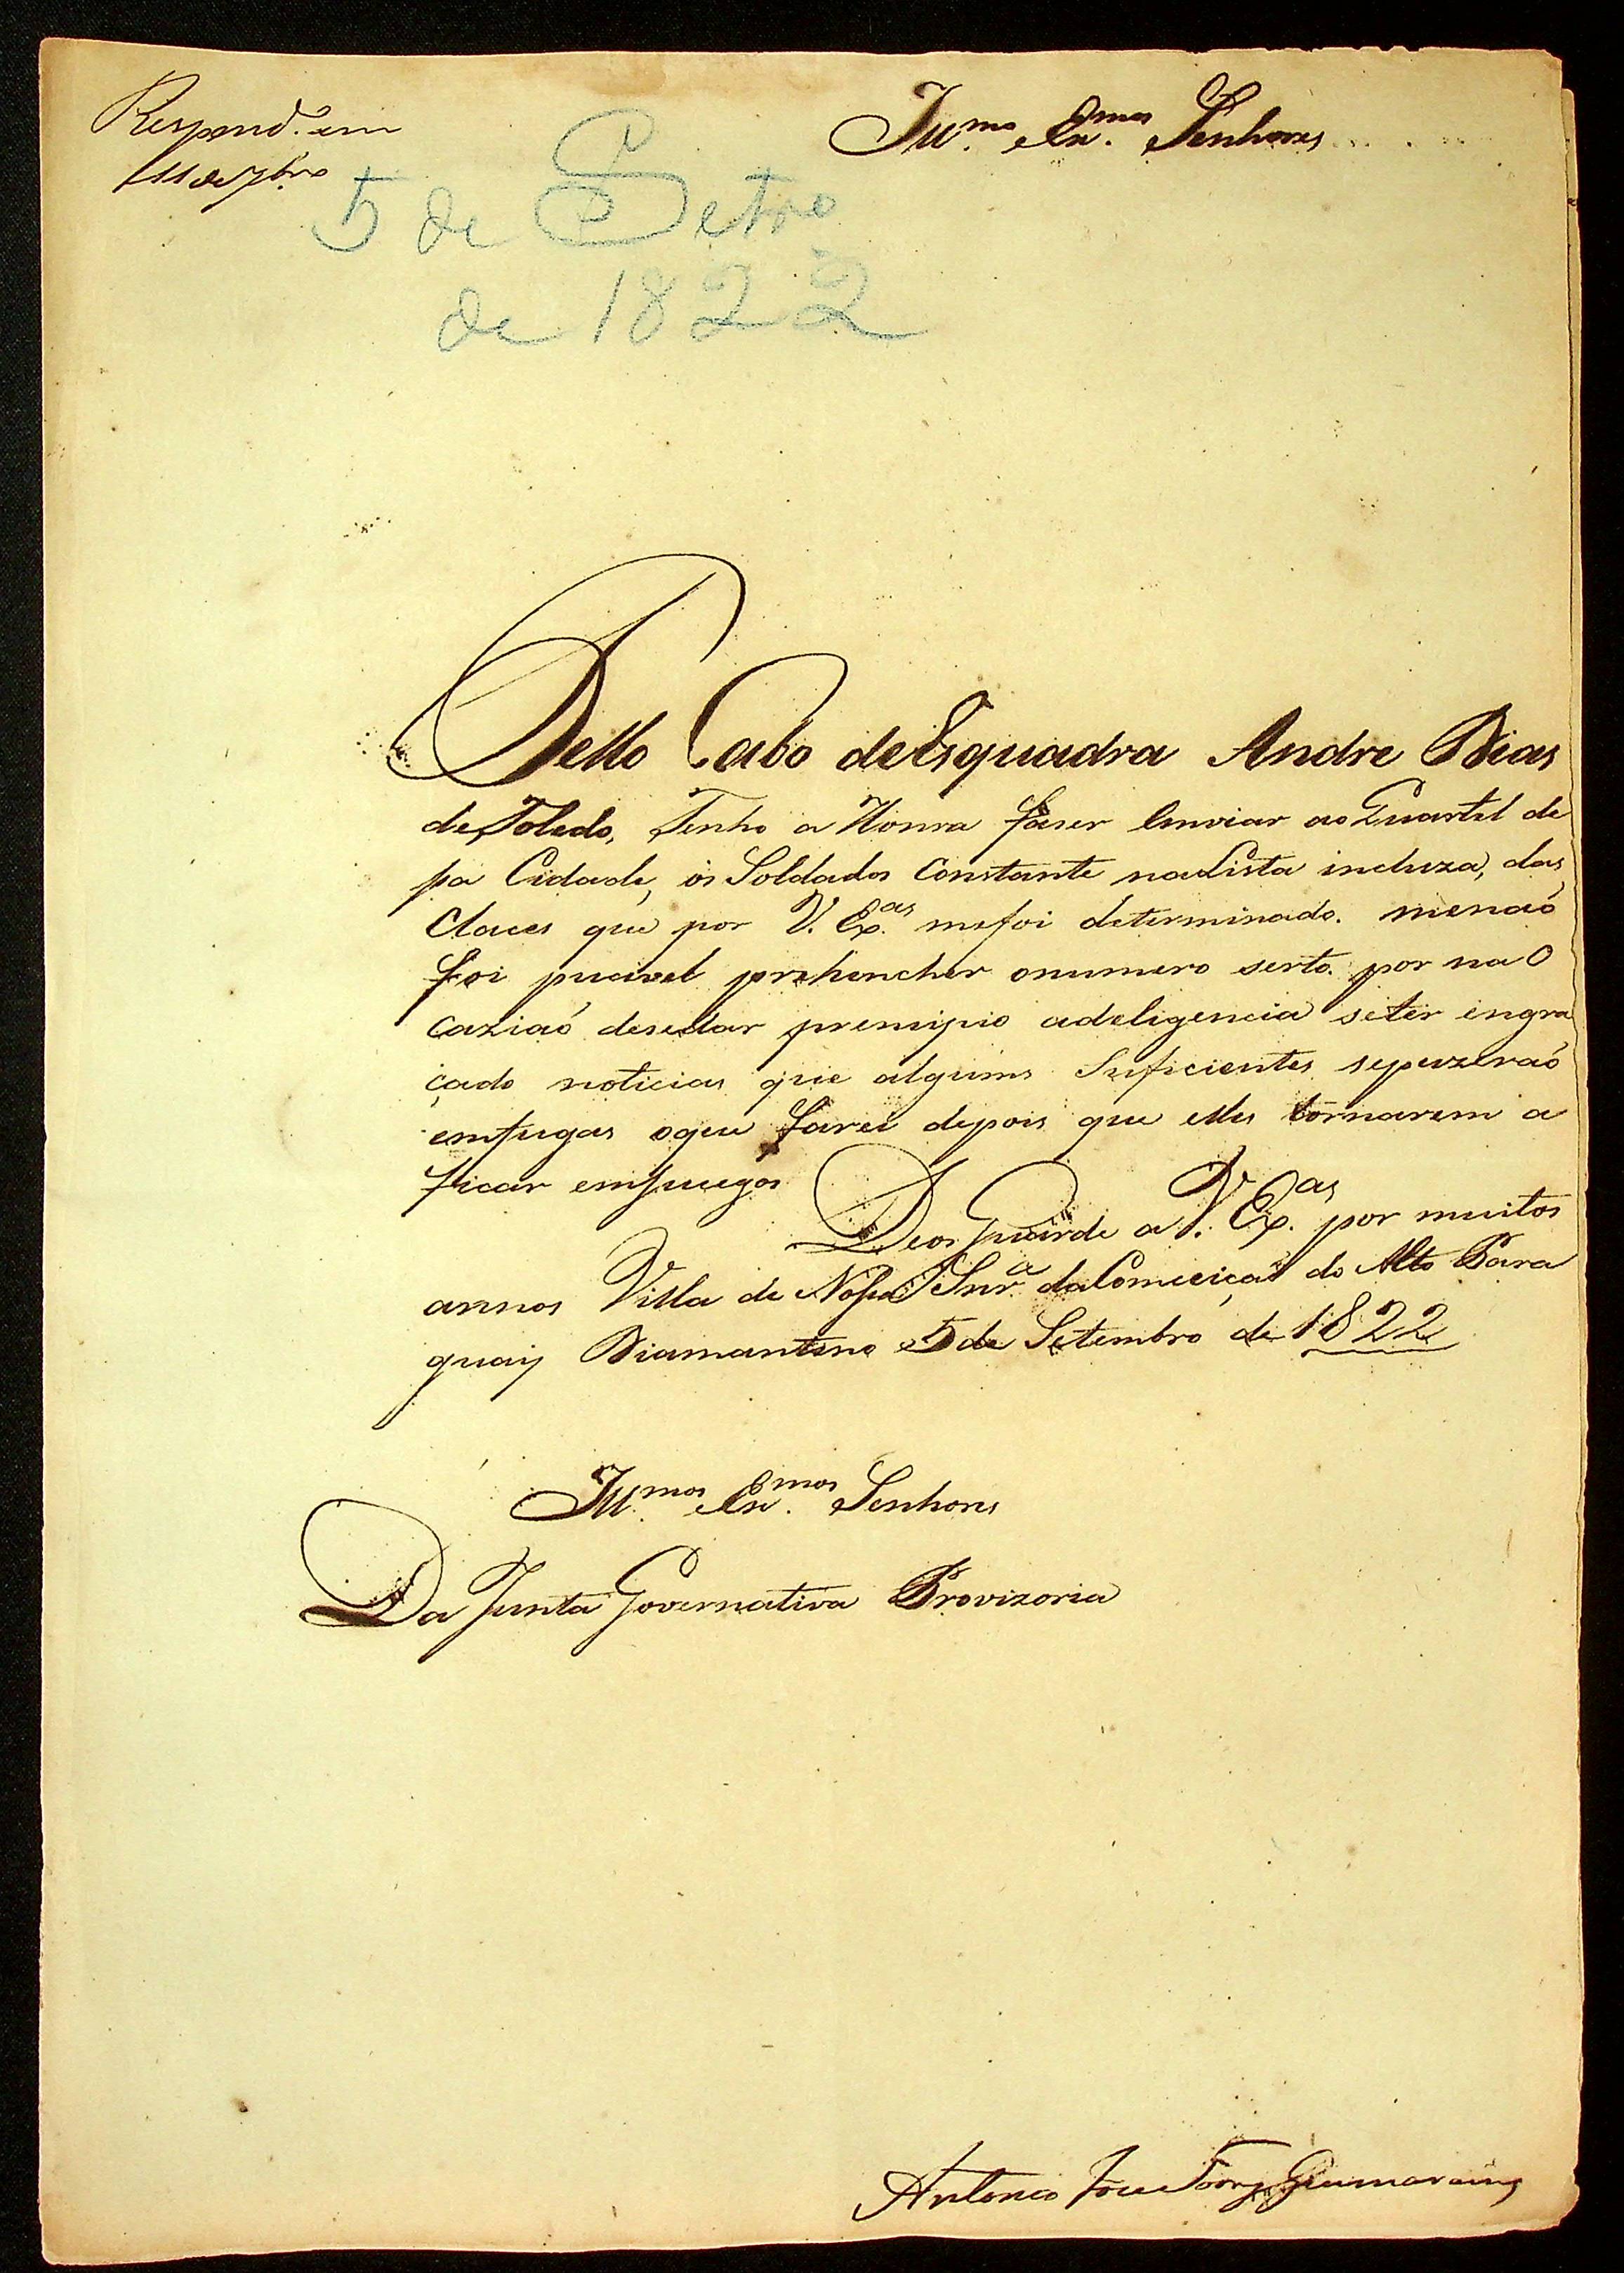 Respend.º em
11 de 7bro
Ill.mos Ex.mos Senhores
5 de Setro
de 1822
Pello Cabo deEsquadra Andre Dias
de Toledo, Tenho a Honra faser Enviar ao Quartel de
ssa Cidade, os Soldados Constante naLista incluza, das
Claces que por V. Ex.as mefoi determinado. menaó
foi pucivel prehencher onumero serto. por na O
caziaó desedar premcipio adeligencia seter
çado noticias que alguns Suficientes sepuzeraó
emfugas oque farei depois que elles tornarem a
ficar
Deos Guarde a V. Ex.as por muitos
annos Villa de Nossa Snr.a daComceiçaó do Alto Para
guay Diamantino 5 de Setembro de 1822
Ill.mos Ex.mos Senhores
Da Junta Governativa Provizoria
Antonio Joze Guimaraens